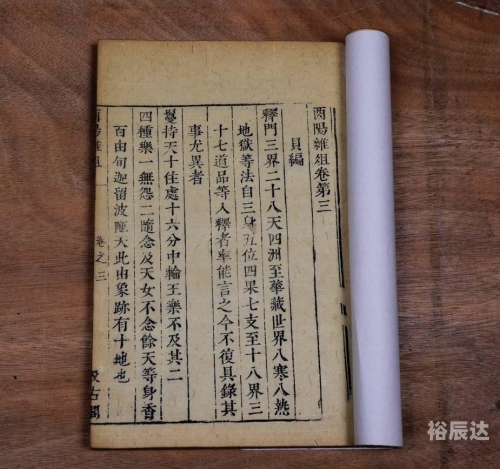 酉陽雜俎卷第三
貝編
釋門三界二十八天四洲至華藏世界八寒八熱
地獄等法自三身五位四果七支至十八界三
十七道品等入釋者率能言之今不復具錄其
事尤異者
鬘持天十住處十六分中輪王樂不及其二
四種樂一無怨二隨念及天女不念餘天等身香
百由旬迦留波陁天此由象跡有十地也
酉陽雜俎
卷之三
汲古閣
裕辰达